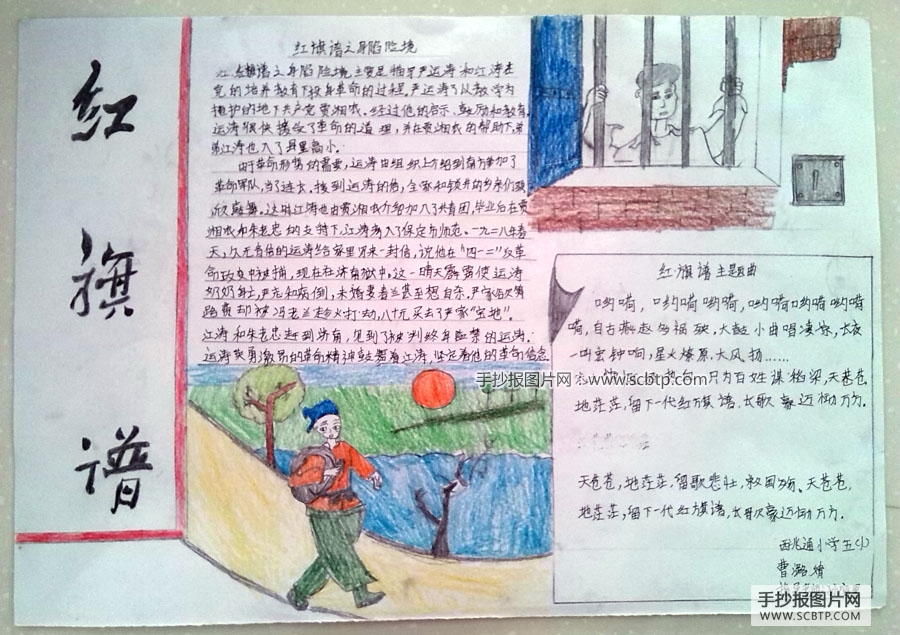 红旗谱
红旗谱之身陷险境
红旗谱之身陷险境主要是描写严运涛和江涛在
党的培养教育下投身革命的过程。严运涛了以教学为
掩护的地下共产党贾湘农。经过他的启示、鼓励和教育,
运涛很快接受了革命的道理,并在贾湘农的帮助下,弟
弟江涛也入了县里高小。
由于革命形势的需要,运涛由组织上介绍到南方参加了
革命军队,当了连长。接到运涛的信,全家和锁井的乡亲们欢
欣鼓舞。这时江涛也由贾湘农介绍加入了共青团,毕业后在贾
湘农和朱老忠的支持下,江涛考入了保定与师范。一九二八年春
天,久无音信的运涛给家里写来一封信,说他在“四一二”反革
命政变中被捕,现在在济南狱中。这一晴天霹雳使运涛
奶奶身亡,严志和病倒,未婚妻春兰甚至想自杀,严家因欠筹
路费却被冯老兰趁火打劫,八十元买去了严家“宝地”。
江涛和朱老忠赶到济南,见到了被判终身监禁的运涛。
运涛英勇激昂的革命精神鼓舞着江涛,坚定着他的革命信念
手抄报图片网 www.scbtp.com
红旗谱主题曲
哟嗬,哟嗬哟嗬,哟嗬哟嗬哟嗬
嗬,自古燕赵多福硖,大鼓小曲唱凄凉,太夜
一叫金钟响,星火燎原,大风扬……
只为百姓谋稻梁,天苍苍,
地茫茫,留下一代红旗谱,长歌豪迈向万方。
天苍苍,地茫茫,留歌悲壮,天苍苍,
地茫茫,留下一代红旗谱,长歌豪迈向万方。
西兆通小学五(1)
曹璐婧
手抄报图片网
WWW.SCBTP.COM